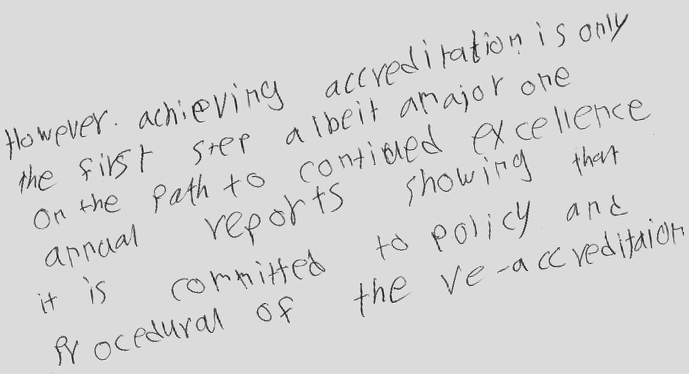 However. achieving accreditation is only
the first step albeit amajor one
on the path to contiued excellence
annual reports showing that
it is committed to policy and
procedural of the re-accreditaion